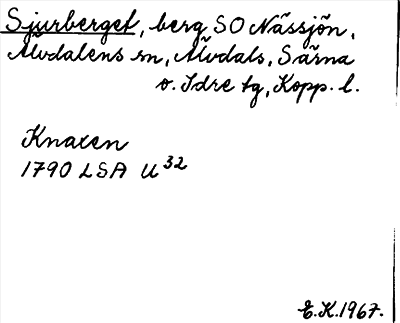 Sjurberget, berg SO Nässjön,
Älvdalens sn, Älvdals, Särna
o. Idre tg, Kopp. l.
Knaxen
1790 LSA U 32
E.K. 1967.